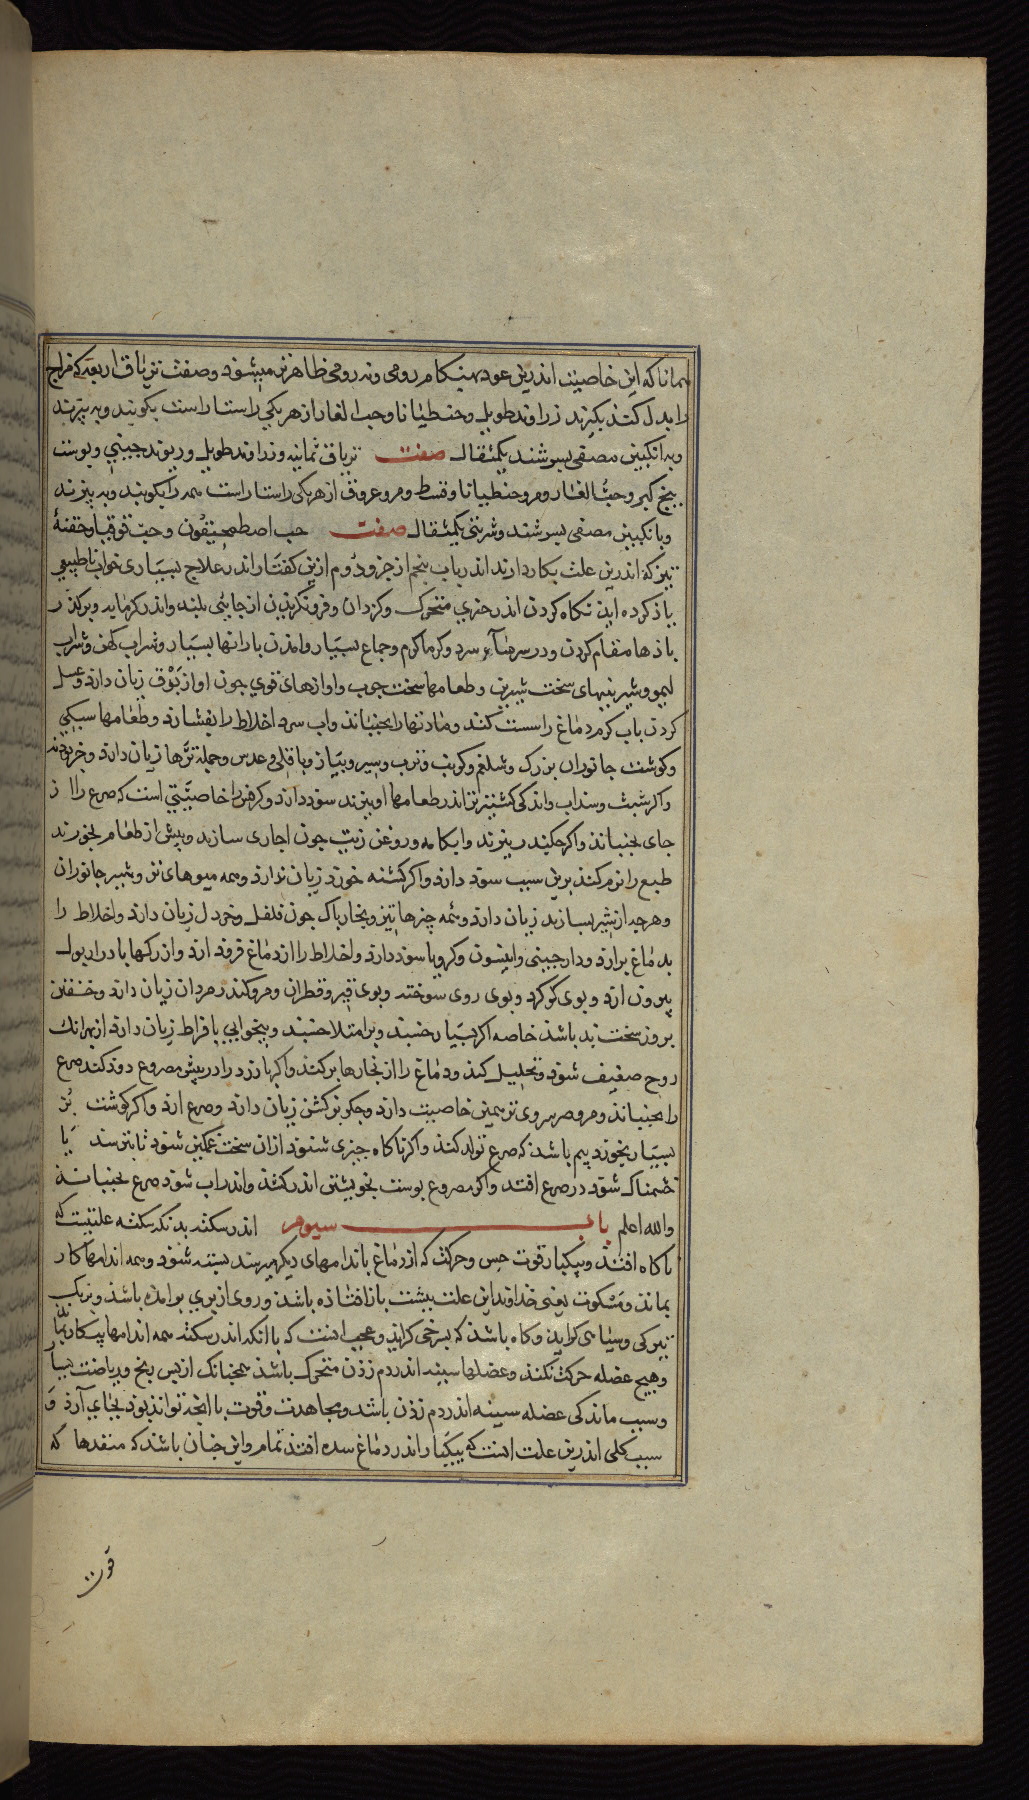 همانا که این خاصیت اندرین عود بهنکام رومی ونه رومی ظاهرتر میشود وصفت تریاق اربعه که مزاج
را بدل کند بکیرند زراوند طویل وجنطیانا وحب الغار از هر یکی راستاراست بکوبند وبه بیزند
وبه انکبین مصفی بسرشند یکمثقال صفت تریاق ثمانیه وزراوند طویل وریوند چینی وپوست
بیخ کبر وحبّ الغار ومر وجنطیانا وقسط ومر وعروق از هر یکی راستاراست همه را بکوبند وبه بیزند
وبانکبین مصفی بسرشند وشربتی یکمثقال صفت حب اصطمحیقون وحبّ قوقیا وحقنهٔ
تیز که اندرین علت بکار دارند اندر باب پنجم از جزو دُوم ازین کفتار اندر علاج بسیاری خواب ناطبیعی
یاذ کرده اید نکاه کردن اندر چیزی متحرک وکردان وفرونکریدن از جایی بلند واندر کرمابه وبرکذر
باذها مقام کردن ودر سرمآء سرد وکرماکرم وجماع بسیار وامدن بارانها بسیار وشراب کهن وشراب
لیمو وشیرینیهای سخت شیرین وطعامها سخت چرب واوازهای قوی چون اواز بَوْق زیان دارد وغسل
کردن باب کرم دماغ را سست کند وماد‌تها را بجنباند واب سرد اخلاط را بفشارد وطعامها سبکی
وکوشت جانوران بزرک وشلغم وکرنب وترب وسیر وپیاز وباقلی وعدس وجمله ترّها زیان دارد
واکر شبث وسداب واندکی کشنیز تر اندر طعامها او پزند سود دارد وکرفس را خاصیّتی است که صرع را از
جای بجنباند واکر چکندر پزند وابکامه وروغن زیت چون اچاری سازند وپیش از طعام بخورند
طبع را نرم کند برین سبب سود دارد واکر کشنه خورد زیان ندارد وهمه میوهای تر وشیر جانوران
وهرچه از شیر بسازند زیان دارد وهمه چیزها تیز وبخارناک چون فلفل وخردل زیان دارد واخلاط را
بدماغ برارد ودارچینی وانیسون وکرویا سود دارد واخلاط را از دماغ فرود ارد واز رکها با درار بول
بیرون ارد وبوی کوکرد وبوی روی سوخته وبوی قیر وقطران ومر وکندر ومردان زیان دارد وخفتن
بروز سخت بد باشد خاصه اکر بسیار خسبد وبرامتلا خسبد وبیخوابی بافراط زیان دارد از بهر انک
روح ضعیف شود وتحلیل کند ودماغ را از بخارها پر کند واکر بارزد را در پیش مصروع دود کند صرع
را بجنباند ومر وصرهروی نیز همین خاصیت دارد وجکر بز کشن زیان دارد وصرع ارد واکر کوشت بُز
بسیار بخورد بیم باشد که صرع تولد کند واکر ناکاه چیزی شنود از ان سخت غمکین شود تا بترسد یا
خشمناک شود در صرع افتد واکر مصروع پوست بخویشتن اندر کشد واندر اب شود صرع بجنباند
والله اعلم باب سیوم اندر سکته بدانکه سکته علتیست که
ناکاه افتد وبیکبار قوت حس وحرکت که از دماغ باندامهای دیکر میرسد بسته شود وهمه اندامها از کار
بماند ومَسْکوت یعنی خداوند این علت بپشت باز افتاده باشد وروی از بوی برامده باشد وبرنک
تیرکی وسیاهی کراید وکاه باشد که بسرخی کراید وعجب انست که با انکه اندر سکته همه اندامها بیکار بماند
وهیچ عضله حرکت نکند وعضلها سینه اندر دم زدن متحرک باشد همچنانک از پس رنج وریاضت بسیار
وسبب ماندکی عضله سینه اندر دم زدن باشد وبمجاهدت وقوت با انچه تواند بود بجای آرد وَ
سبب کلی اندرین علت انست که بیکبار اندر دماغ سده افتد تمام واین چنان باشد که منفدها که
قوت